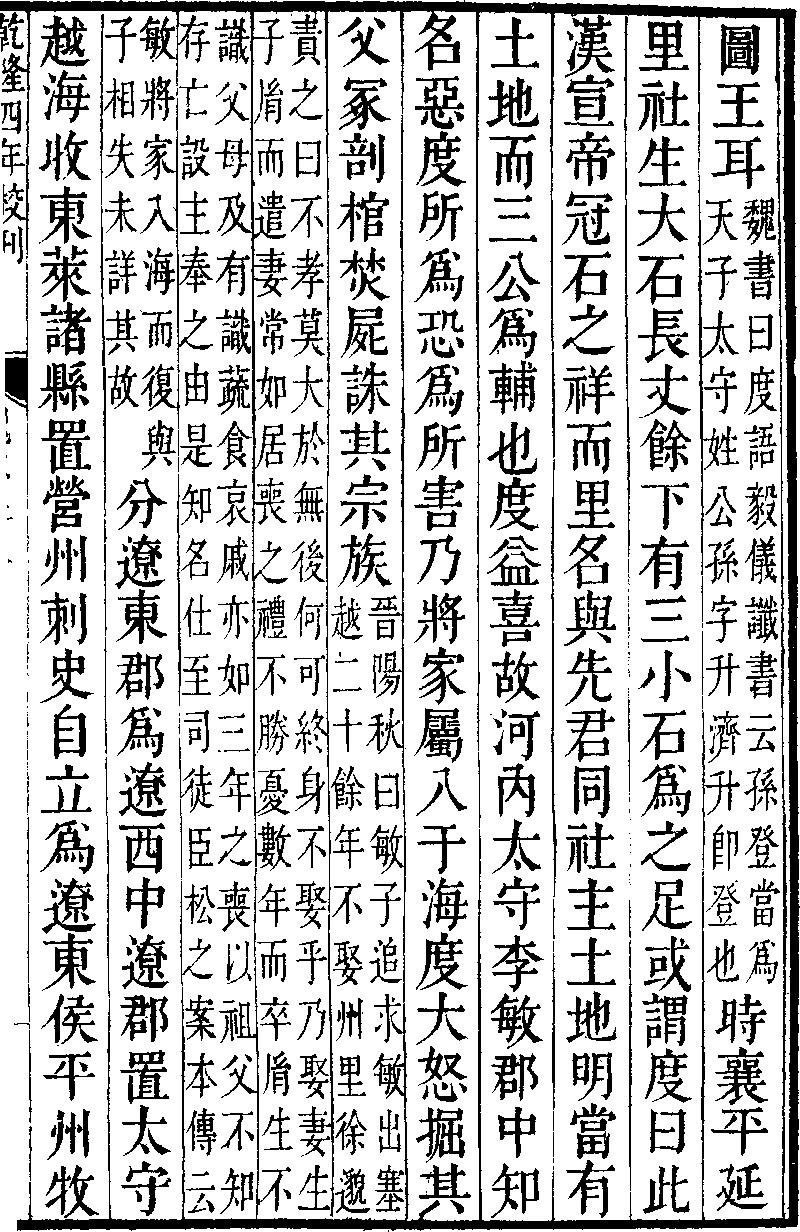 圖王耳魏書曰度語毅儀讖書云孫登當爲
天子太守姓公孫字升濟升卽登也時襄平延
里社生大石長丈餘下有三小石爲之足或謂度曰此
漢宣帝冠石之祥而里名與先君同社主土地明當有
土地而三公爲輔也度益喜故河內太守李敏郡中知
名惡度所爲恐爲所害乃將家屬入于海度大怒掘其
父冢剖棺焚屍誅其宗族晉陽秋曰敏子追求敏出塞
越二十餘年不娶州里徐邈
責之曰不孝莫大於無後何可終身不娶乎乃娶妻生
子胤而遣妻常如居喪之禮不勝憂數年而卒胤生不
識父母及有識蔬食哀戚亦如三年之喪以祖父不知
存亡設主奉之由是知名仕至司徒臣松之案本傳云
敏將家入海而復與
子相失未詳其故分遼東郡爲遼西中遼郡置太守
越海收東萊諸縣置營州刺史自立爲遼東侯平州牧
乾隆四年校刊